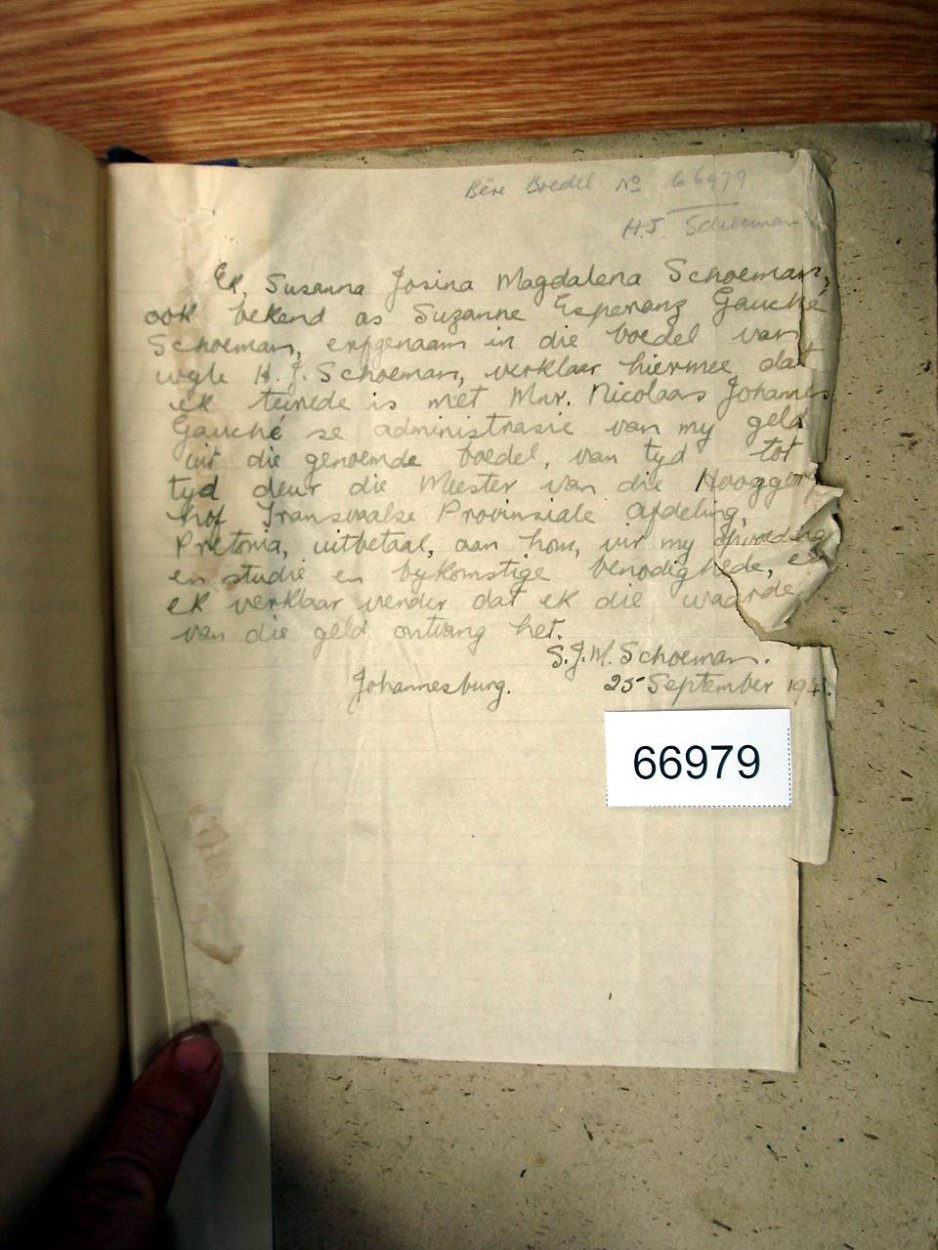 Bêre Boedel No 66979
H.J. Schoeman
Ek, Susanna Josina Magdalena Schoeman,
ook bekend as Suzanne Esperanz Gauché
Schoeman, erfgenaam in die boedel van
wyle H. J. Schoeman, verklaar hiermee dat
ek tevrede is met Mnr. Nicolaas Johannes
Gauché se administrasie van my geld
uit die genoemde boedel, van tyd tot
tyd deur die Meester van die
hof Transvaalse Provinsiale afdeling,
Pretoria, uitbetaal, aan hom, vir my opvoeding
en studie en bykomstige benodighede, en
ek verklaar verder dat ek die waarde
van die geld ontvang het.
S.J.M. Schoeman.
Johannesburg. 25 September
66979